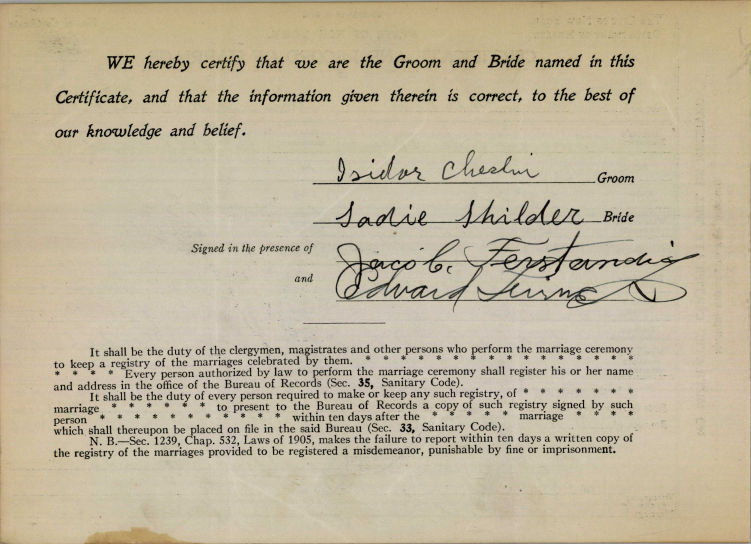 WE hereby certify that we are the Groom and Bride named in this
Certificate, and that the information given therein is correct, to the best of
our knowledge and belief.
Isidor Cheslin Groom
Sadie Shilder Bride
Signed in the presence of Jacob Ferstandig
and Edward
It shall be the duty of the clergymen, magistrates and other persons who perform the marriage ceremony
to keep a registry of the marriages celebrated by them. * * * * * * * * * * * * * * * * *
* * * * Every person authorized by law to perform the marriage ceremony shall register his or her name
and address in the office of the Bureau of Records (Sec. 35, Sanitary Code).
It shall be the duty of every person required to make or keep any such registry, of * * * * * * *
marriage * * * * * * to present to the Bureau of Records a copy of such registry signed by such
person * * * * * * * * * * * within ten days after the * * * * * * marriage * * * *
which shall thereupon be placed on file in the said Bureau (Sec. 33, Sanitary Code).
N. B.—Sec. 1239, Chap. 532, Laws of 1905, makes the failure to report within ten days a written copy of
the registry of the marriages provided to be registered a misdemeanor, punishable by fine or imprisonment.